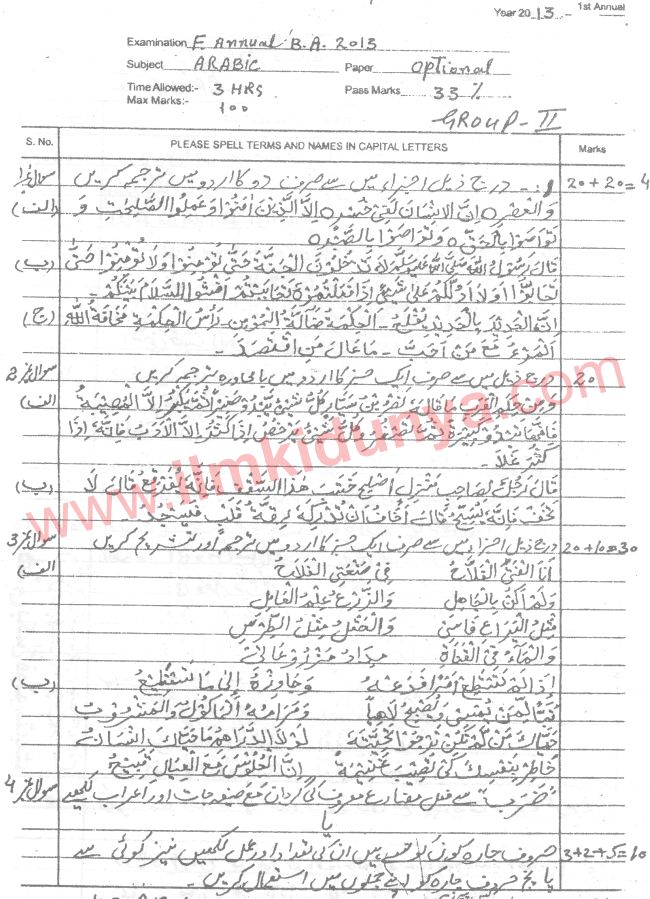 Year 2013 1st Annual
Examination E Annual B.A. 2013
Subject ARABIC Paper optional
Time Allowed:- 3 HRS Pass Marks 33%
Max Marks:- 100
GROUP-II
S. No. PLEASE SPELL TERMS AND NAMES IN CAPITAL LETTERS Marks
سوال نمبر1 درج ذیل اجزاء میں سے صرف دو کا اردو میں ترجمہ کریں 20+20=4
(الف) وَالْعَصْرِ ہ اِنَّ الْاِنْسَانَ لَفِیْ خُسْرٍ ہ اِلَّا الَّذِیْنَ اٰمَنُوْا وَعَمِلُوا الصّٰلِحٰتِ وَ
تَوَاصَوْا بِالْحَقِّ ہ وَتَوَاصَوْا بِالصَّبْرِ ہ
(ب) قَالَ رَسُوْلُ اللّٰہِ صَلَّی اللّٰہُ عَلَیْہِ وَسَلَّمَ لَا تَدْخُلُوْنَ الْجَنَّةَ حَتّٰی تُؤْمِنُوْا وَلَا تُؤْمِنُوْا حَتّٰی
تَحَابُّوْا اَوَلَا اَدُلُّکُمْ عَلٰی شَیْءٍ اِذَا فَعَلْتُمُوْہُ تَحَابَبْتُمْ اَفْشُوا السَّلَامَ بَیْنَکُمْ۔
(ج) اِنَّ الْحَدِیْدَ بِالْحَدِیْدِ یُفْلَحُ۔ اَلْحِکْمَةُ ضَالَّةُ الْمُؤْمِنِ۔ رَأْسُ الْحِکْمَةِ مَخَافَةُ اللّٰہِ
اَلْمَرْءُ مَعَ مَنْ اَحَبَّ۔ مَا عَالَ مَنِ اقْتَصَدَ۔
سوال نمبر2 درج ذیل میں سے صرف ایک جز کا اردو میں با محاورہ ترجمہ کریں 20
الف) کُلُّ شَیْءٍ یَبْدُو صَغِیْرًا ثُمَّ یَکْبُرُ اِلَّا الْمُصِیْبَةَ
وَکُلُّ شَیْءٍ یَرْخُصُ اِذَا کَثُرَ اِلَّا الْاَدَبَ فَاِنَّہٗ اِذَا
کَثُرَ غَلَا۔
(ب) قَالَ رَجُلٌ لِصَاحِبِ مَنْزِلٍ اَصْلِحْ خَشَبَ ھٰذَا السَّقْفِ فَاِنَّہٗ یُقَرْقِعُ قَالَ لَا
تَخَفْ فَاِنَّہٗ یُسَبِّحُ قَالَ اَخَافُ اَنْ تُدْرِکَہٗ رِقَّةُ قَلْبٍ فَیَسْجُدَ۔
سوال نمبر3 درج ذیل اجزاء میں سے صرف ایک جز کا اردو میں ترجمہ اور تشریح کریں 20+10=30
الف) اَنَا الْفَتَی الْفَلَّاحُ فِیْ صَنْعَتِی الْفَلَاحُ
وَلَمْ اَکُنْ بِالْجَاھِلِ وَالزَّرْعُ عِلْمُ الْعَامِلِ
مِثْلُ الْیَرَاعِ فَأْسِیْ وَالْحَقْلُ مِثْلُ الطِّرْسِ
وَالْمَاءُ فِی الْقَنَاةِ مِدَادُ مَزْرُوْعَاتِیْ
(ب) اِذَا لَمْ تَسْتَطِعْ اَمْرًا فَدَعْہُ وَجَاوِزْہُ اِلٰی مَا تَسْتَطِیْعُ
تَبًّا لِمَنْ یُمْسِیْ وَیُصْبِحُ لَاھِیًا وَمَرَامُہُ الْمَأْکُوْلُ وَالْمَشْرُوْبُ
لَوْلَا الدَّرَاھِمُ مَا حَیَّاکَ اِنْسَانُ
خَاطِرْ بِنَفْسِکَ کَیْ تُصِیْبَ غَنِیْمَةً اِنَّ الْجُلُوْسَ مَعَ الْعِیَالِ قَبِیْحُ
سوال نمبر4 "ضَرَبَ" سے فعل مضارع معروف کی گردان مع صیغہ جات اور اعراب لکھیے
یا
حروف جارہ کون کون سے ہیں ان کی تعداد اور عمل لکھیں نیز کوئی سے 3+2+5=10
پانچ حروف جارہ کو اپنے جملوں میں استعمال کریں۔
www.ilmkidunya.com